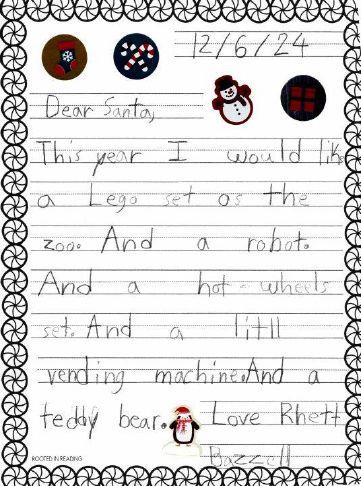 12/6/24
Dear Santa,
This year I would like
a Lego set os the
zoo. And a robot.
And a hot-wheels
set. And a litll
vending machine. And a
teddy bear. Love Rhett
Bazzell
ROOTED IN READING